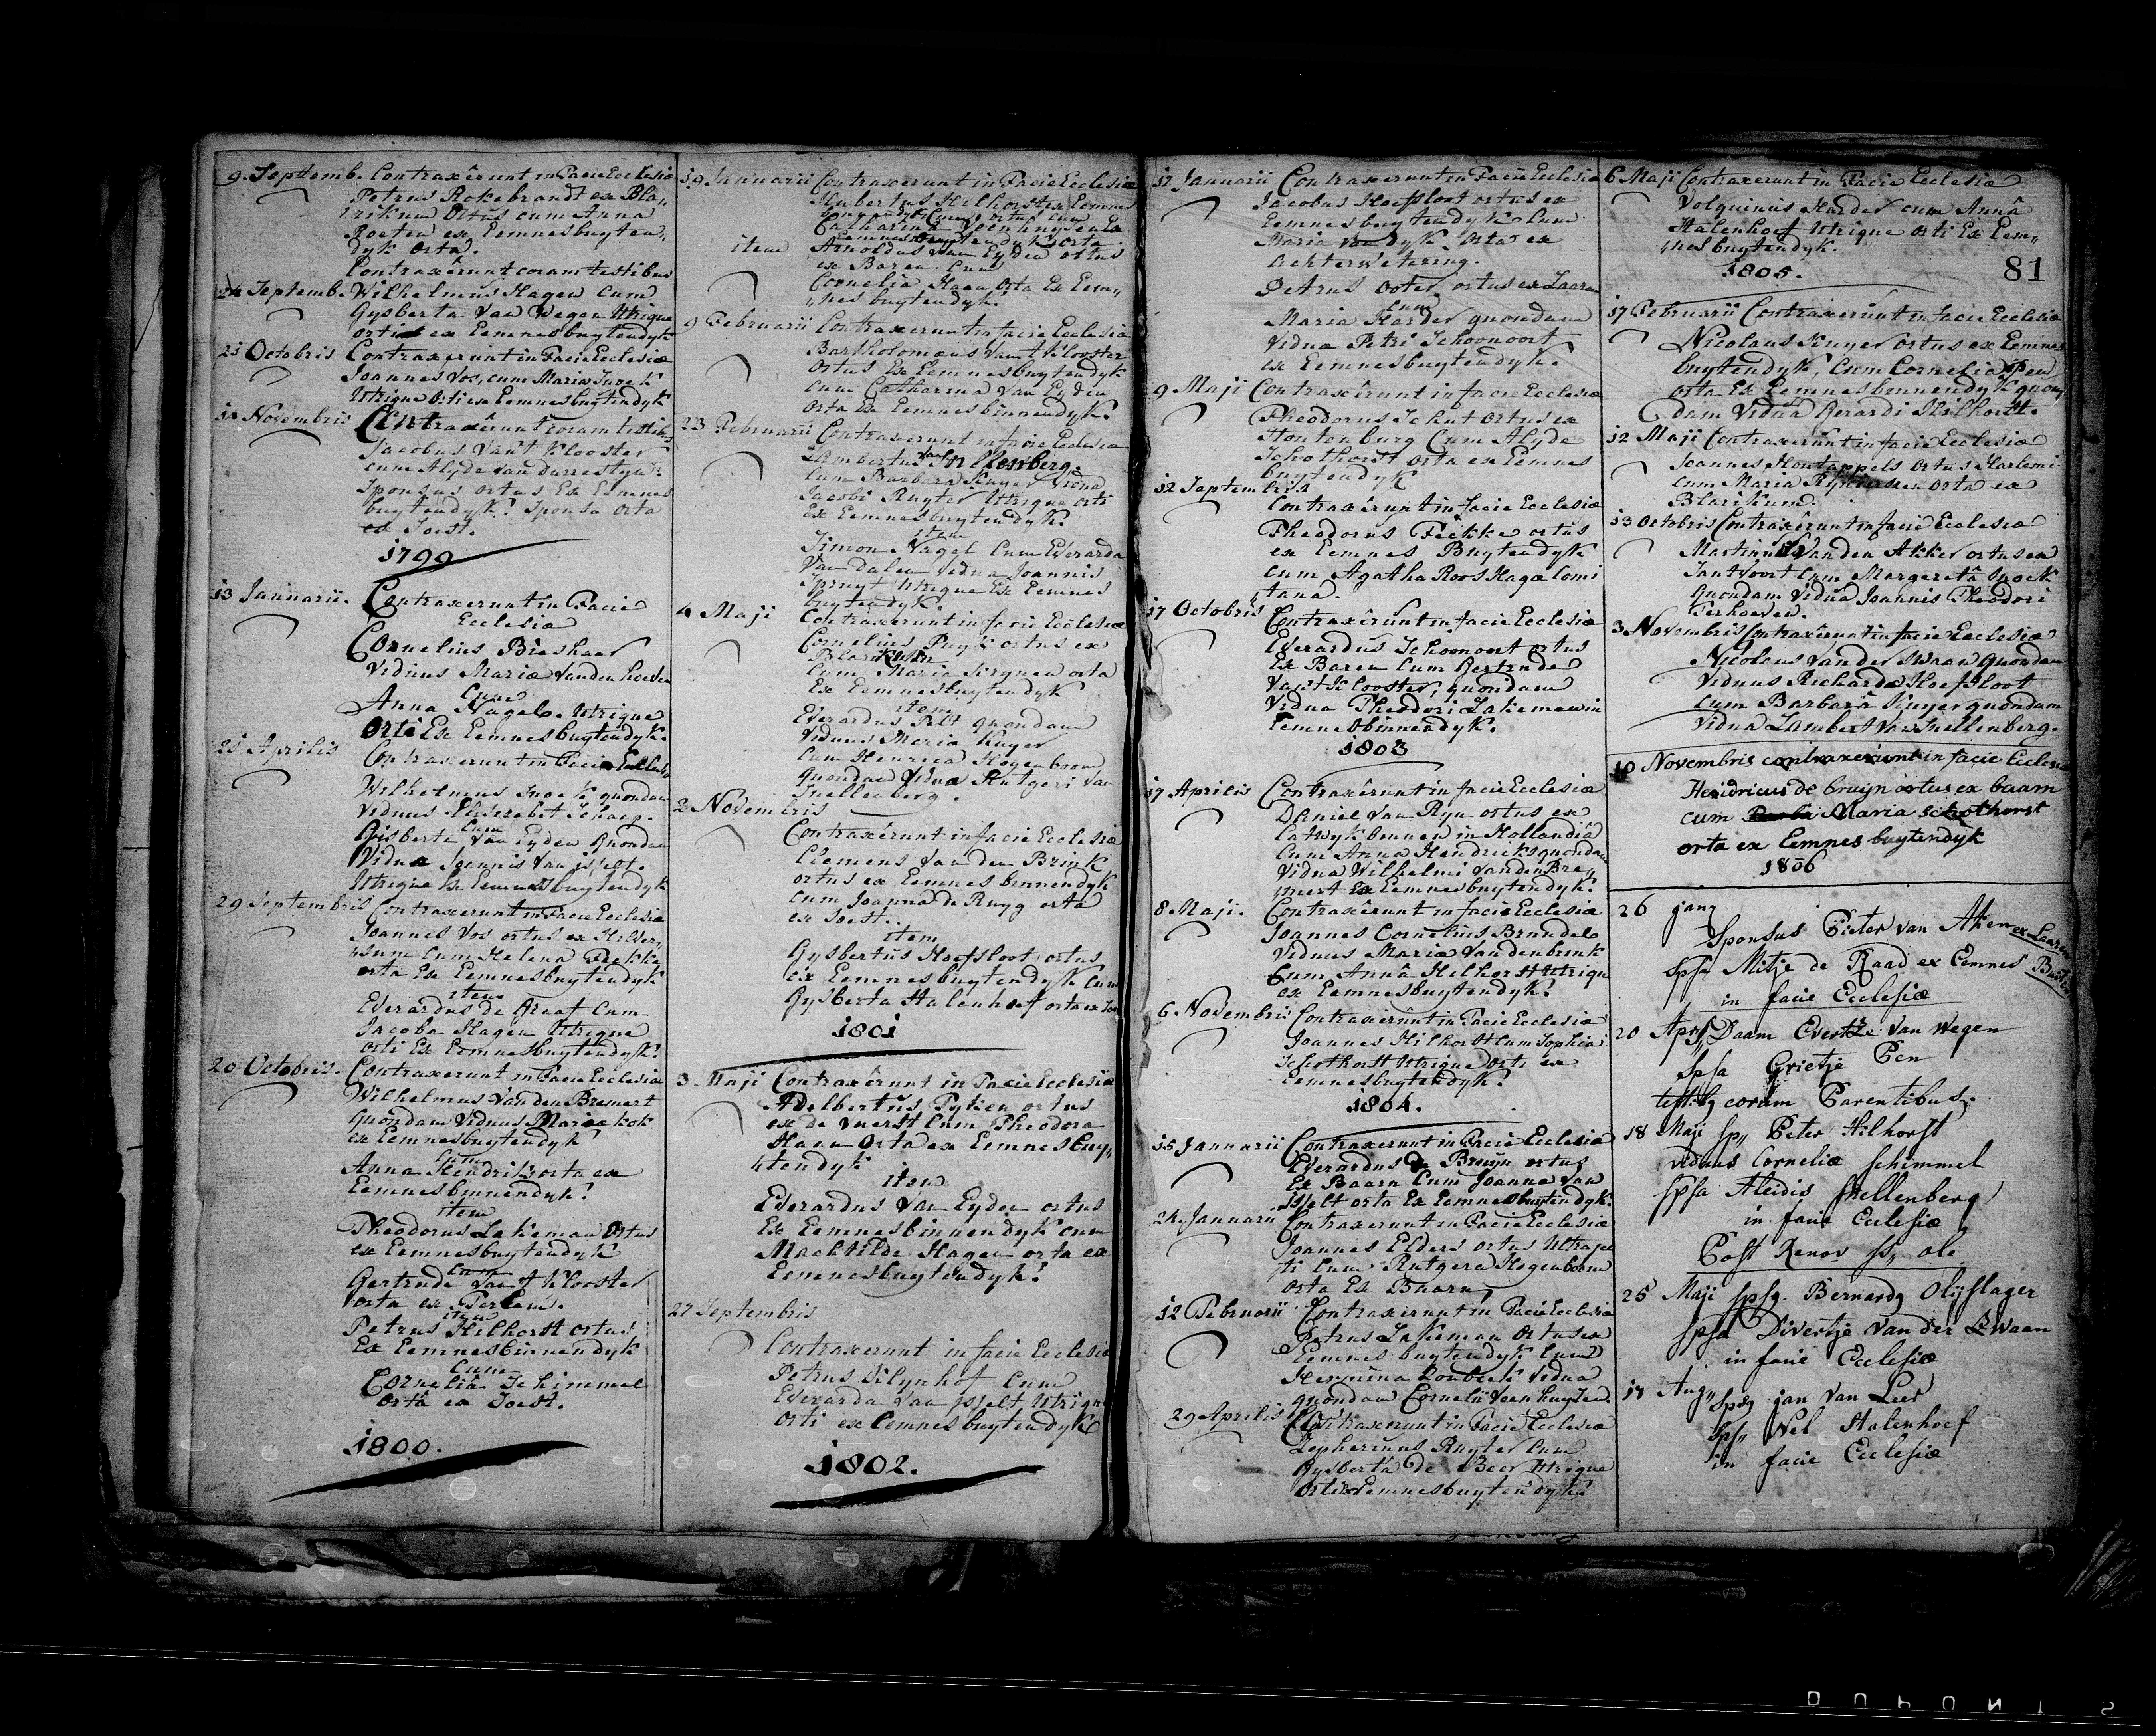 9. Septemb. Contraxêrunt in Facie Ecclesiæ
Petrus Rokebrandt ex Bla„
rikum Ortus cum Anna
Roeten ex Eemnesbuyten„
dyk Orta.
Contraxêrunt coram testibus
24 Septemb. Wilhelmus Hagen cum
Gysberta Van Wegen Utrique
orti ex Eemnesbuytendyk
21 Octobris Contraxerunt in Facie Ecclesiæ
Joannes Vos, cum Maria
Utrique Orti ex Eemnesbuytendyk
Novembris Contraxêrunt coram testib
Jacobus Van't Klooster
cum Alyde Van
Sponsus ortus Ex Eemnes
buytendyk: Sponsa Orta
ex Soest.
1799
13 Januarii. Contraxerunt in Facie
Ecclesiæ
Cornelius Bieshaer
Viduus Mariæ Vanden
Cum
Anna Nagel. Utrique
Orti Ex Eemnesbuytendyk.
Aprilis Contraxerunt in Facie
Wilhelmus Snoek quondam
Viduus Elisabet Schaep.
Cum
Gisberta Van Eyden Quondam
Vidua Joannis Van ysselt.
Utrique Ex Eemnesbuytendyk
29 Septembris Contraxerunt in Facie Ecclesiæ
Joannes Vos ortus ex Hilver„
sum Cum Helena Fekke
orta Ex Eemnesbuytendyk
item
Everardus de Graaf Cum
Jacoba Hagen Utrique
orti Ex Eemnesbuytendyk:
20 Octobris. Contraxerunt in Facie Ecclesiæ
Wilhelmus Vanden Bremert
Quondam Viduus Mariæ kok
ex Eemnesbuytendyk
Cum
Anna Hendriks orta ex
Eemnesbinnendyk:
item
Theodorus Lakeman Ortus
ex Eemnesbuytendyk
Cum
Gertrude Van't Klooster
orta ex
item
Petrus Hilhorst ortus
Ex Eemnesbinnendyk
Cum
Cornelia Schimmel
Orta ex Soest.
1800.
19 Januarii Contraxerunt in Facie Ecclesiæ
Hubertus Hilhorst ex Eemnes
ortus Cum
Catharina
Eemnesbuytendyk orta
item Arnoldus Van Eyden ortus
ex Baren Cum
Cornelia Haen Orta Ex Eem„
„nes buytendyk.
9 Februarii Contraxerunt in facie Ecclesiæ
Bartholomæus Van't Klooster
Ortus Ex Eemnesbuytendyk
cum Catharina Van Eyden
Orta Ex Eemnesbinnendyk.
23 Februarii Contraxerunt in facie Ecclesiæ
Lambertus Van Snellenberg
Cum Barbara Kuyer Vidua
Jacobi Ruyter Utrique orti
Ex Eemnesbuytendyk.
item
Simon Nagel Cum Everarda
Van Dalen Vidua Joannis
Spruyt Utrique Ex Eemnes
buytendyk.
4 Maji Contraxerunt in facie Ecclesiæ
Cornelius Puyk ortus ex
Blarikum
Cum Maria orta
Ex Eemnesbuytendyk
item
Everardus Pelt quondam
Viduus Maria Kuyer
Cum Henrica Hogenboom
Quondam Vidua Rutgeri Van
Snellenberg.
2 Novembris
Contraxêrunt in facie Ecclesiæ
Clemens Vanden Brink
ortus ex Eemnes binnendyk
cum Joanna de Ruyg orta
ex Soest.
item
Gysbertus Hoefsloot ortus
ex Eemnesbuytendyk Cum
Gysberta Stalenhoef orta ex
1801
3 Maji Contraxêrunt in Facie Ecclesiæ
Adelbertus Tyken ortus
ex de Vuerst Cum Theodora
Haen Orta ex Eemnes buy„
„tendyk
item
Everardus Van Eyden ortus
Ex Eemnesbinnendyk cum
Machtilde Hagen orta ex
Eemnesbuytendyk.
27 Septembris
Contraxerunt in facie Ecclesiæ
Petrus Slynhof Cum
Everarda Van ysselt Utrique
Orti ex Eemnesbuytendyk
1802.
17 Januarii Contraxerunt in Facie Ecclesiæ
Jacobus Hoefsloot ortus ex
Eemnesbuytendyk Cum
Maria Van dyk Orta ex
Achterwetering.
Petrus Ooter ortus ex Laaren
Cum
Maria Harder quondam
Vidua Petri Schoonoort
ex Eemnesbuytendyk.
9 Maji Contraxêrunt in facie Ecclesiæ
Theodorus Schut Ortus ex
Houtenburg Cum Alyde
Schothorst Orta ex Eemnes
buytendyk
12 Septembris
Contraxerunt in facie Ecclesiæ
Theodorus Fekke ortus
ex Eemnes Buytendyk
cum Agatha Roos Hagæ Comi
tana.
17 Octobris Contraxêrunt in facie Ecclesiæ
Everardus Schoonoort ortus
Ex Baren Cum Gertrude
Van't Klooster, quondam
Vidua Theodori Lakeman in
Eemnesbinnendyk.
1803
17 Aprilis Contraxêrunt in facie Ecclesiæ
Daniel Van Ryn ortus ex
Catwyk binnen in Hollandiâ
Cum Anna Hendriks quondam
Vidua Wilhelmi Vanden Bre„
„mert Ex Eemnesbuytendyk.
8 Maji. Contraxêrunt in facie Ecclesiæ
Joannes Cornelius Brundel
Viduus Mariæ Vandenbrink
Cum Annâ Hilhorst Utrique
ex Eemnesbuytendyk.
6 Novembris Contraxêrunt in Facie Ecclesiæ
Joannes Hilhorst Cum Sophia
Schothorst Utrique Orti ex
Eemnesbuytendyk.
1804.
15 Januarii Contraxerunt in Facie Ecclesiæ
Everardus de Bruyn ortus
Ex Baarn Cum Joanna Van
ysselt orta Ex Eemnesbuytendyk.
24. Januarii Contraxerunt in Facie Ecclesiæ
Joannes Elders ortus Ultraje
ti Cum Rutgera Hogenboom
Orta Ex Baarn
12 Februarii Contraxêrunt in Facie Ecclesiæ
Petrus Lakeman Ortus ex
Eemnes buytendyk Cum
Hermina Vidua
quondam Cornelii Veenhuysen.
29 Aprilis Contraxerunt in Facie Ecclesiæ
Zepherinus Ruyter Cum
Gysberta de Beer Utrique
Orti ex Eemnesbuytendyk.
6 Maji Contraxerunt in Facie Ecclesiæ
Volquinus Harder cum Annâ
Stalenhoef Utrique Orti Ex Eem„
„nes buytendyk.
1805.
81
17 Februarii Contraxerunt in facie Ecclesiæ
Nicolaus Kuyer Ortus ex Eemnes
buytendyk, Cum Cornelia Pen
orta Ex Eemnesbinnendyk quon„
dam Viduâ Gerardi Hilhorst.
12 Maji Contraxêrunt in facie Ecclesiæ
Joannes Houtappels Ortus Harlemi
cum Maria orta ex
Blarikum.
13 Octobris Contraxêrunt in facie Ecclesiæ
Martinus Vanden Akker ortus ex
Santvoort Cum Margeretâ Snoek
Quondam Viduâ Joannis Theodori
Terhoeven.
3 Novembris Contraxêrunt in facie Ecclesiæ
Nicolaus Van der Swaan quondam
Viduus Richardæ Hoefsloot
Cum Barbarâ Kuyer quondam
Vidua Lambert Van Snellenberg.
10 Novembris contraxerunt in facie Ecclesiæ
Hendricus de bruijn ortus ex baarn
cum Maria schothorst
orta ex Eemnes buytendyk
1806
26 jan„
Sponsus Pieter van Aken ex Laaren
spsa Mitje de Raad ex Eemnes
in facie Ecclesiæ
20 Apr. sps„ Daam Evertze Van Wegen
Spsa Grietje Pen
testibus coram Parentibus.
18 Maji sp„ Peter Hilhorst
viduus Corneliæ Schimmel
Spsa Aleidis Snellenberg
in facie Ecclesiæ
Post Renov
25 Maji spsq. Bernardq Olijslager
Spsa Divertje van der Zwaan
in facie Ecclesiæ
17 Aug„ Spsq jan Van Leer
Sps„ Nel Stalenhoef
in facie Ecclesiæ